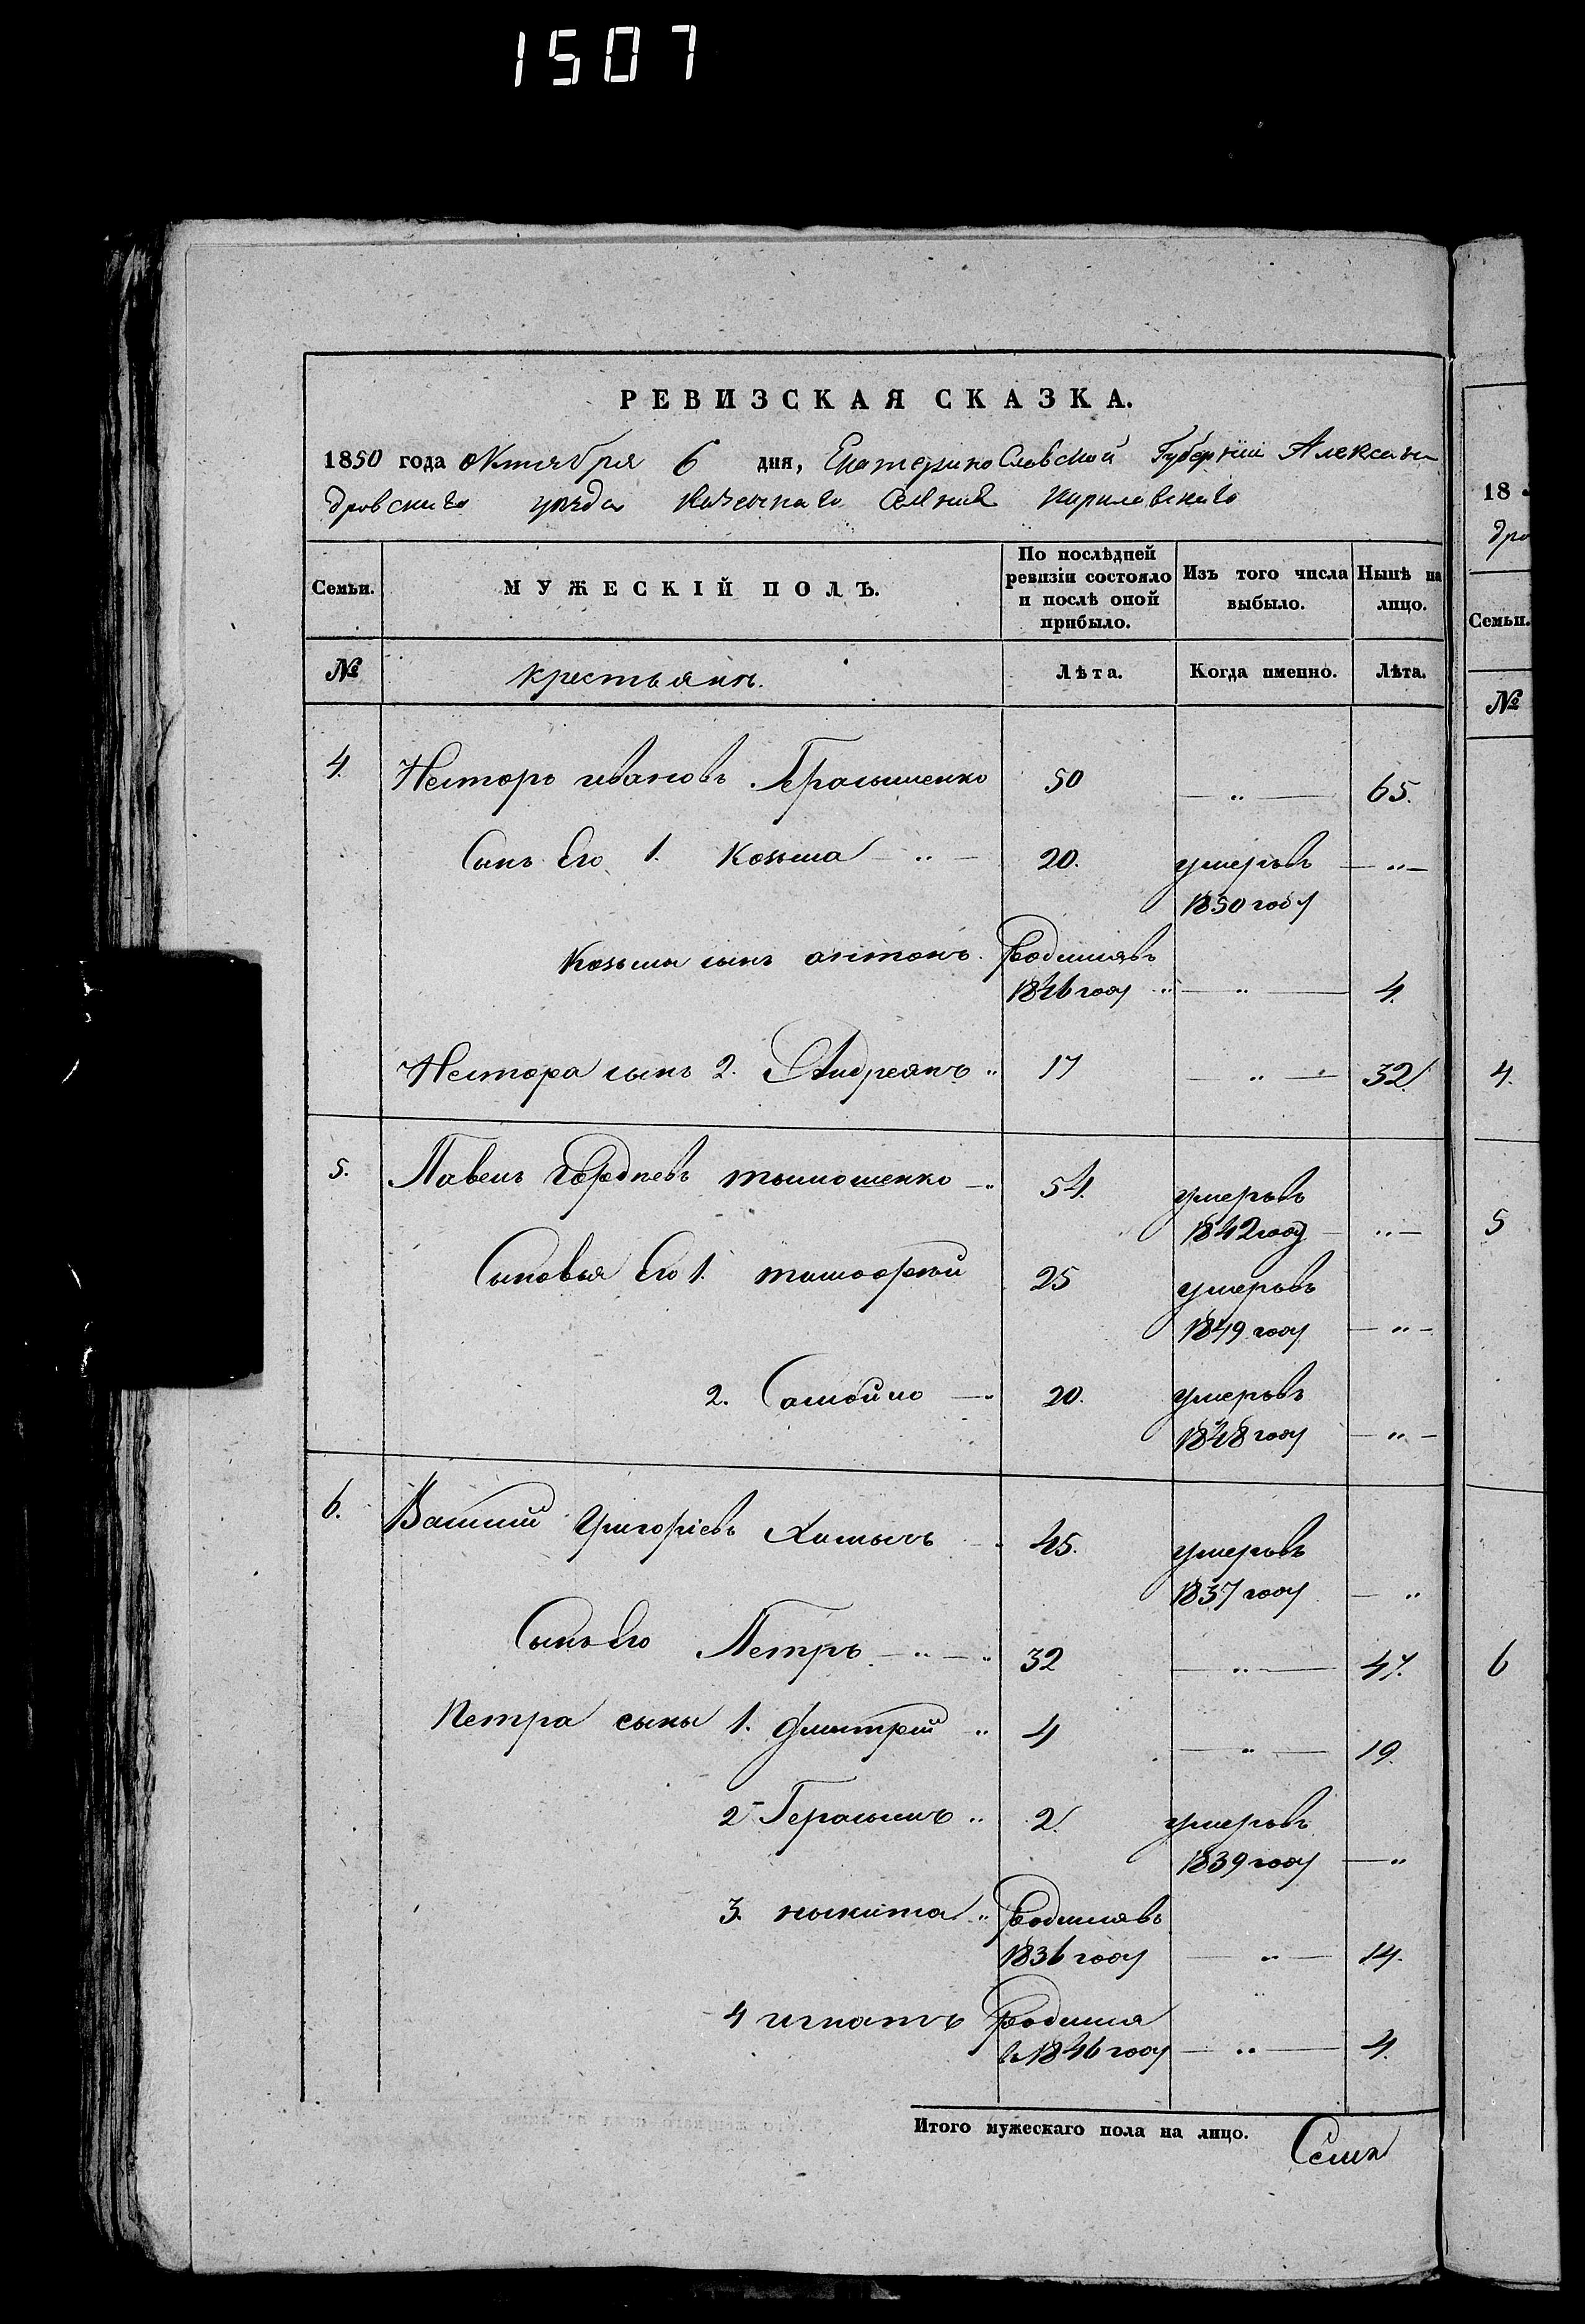 1507
РЕВИЗСКАЯ СКАЗКА.
1850 года октября 6 дня, Екатеринославской Губернии Алексан
дровскаго уезда Казеннаго Селения Кириловскаго
Семьи. МУЖЕСКІЙ ПОЛЪ. По послѣдней ревизіи состояло и послѣ оной прибыло. Изъ того числа выбыло. Нынѣ на лицо.
№ крестьянъ. Лѣта. Когда именно. Лѣта.
4. Несторъ ивановъ Герасименко 50 — „ — 65.
Сынъ Его 1. Козьма — „ — 20. умеръ въ — „ —
1850 году
Козьмы сынъ антонъ. Родился въ
1846 году „ — „ — 4.
Нестора сынъ 2. Андреянъ „ 17 — „ — 32.
5. Павелъ Гордѣевъ тымошенко — „ 54. умеръ въ
1842 году — „ —
Сыновья Его 1. тимофей 25 умеръ въ
1849 году — „ —
2. Самойло — „ 20. умеръ въ
1848 году — „ —
6. Василий Григоріевъ 45. умеръ въ
1837 году — „
Сынъ Его Петръ — „ — „ 32 — „ — 47.
Петра сыны 1. Дмитрей „ 4 — „ — 19.
2 Герасимъ „ 2. умеръ въ
1839 году — „
3. никита „ Родился въ
1836 году — „ — 14.
4 игнатъ Родился
въ 1846 году — „ — 4.
Итого мужескаго пола на лицо. Семь
18
дро
Семьи.
№
4.
5
6